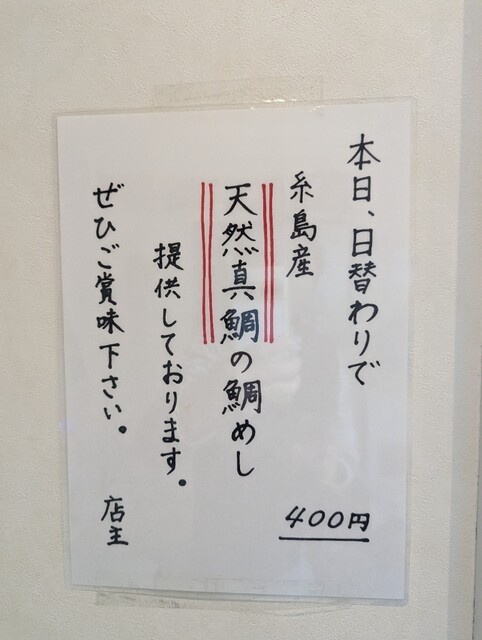 本日、日替わりで
糸島産
天然真鯛の鯛めし
400円
提供しております。
ぜひご賞味下さい。
店主